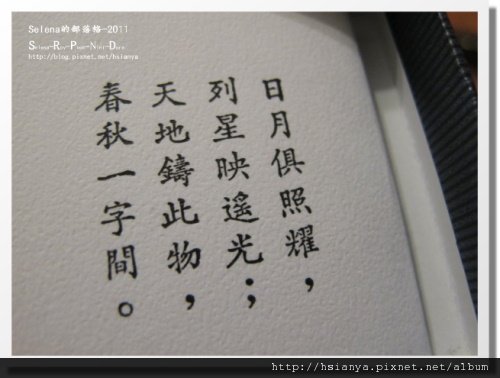 Selena的部落格-2011
Selena-Roy-Phoe-Nini-Dora
http://blog.pixnet.net/hsianya
日月俱照耀，
列星映遙光；
天地鑄此物，
春秋一字間。
http://hsianya.pixnet.net/album